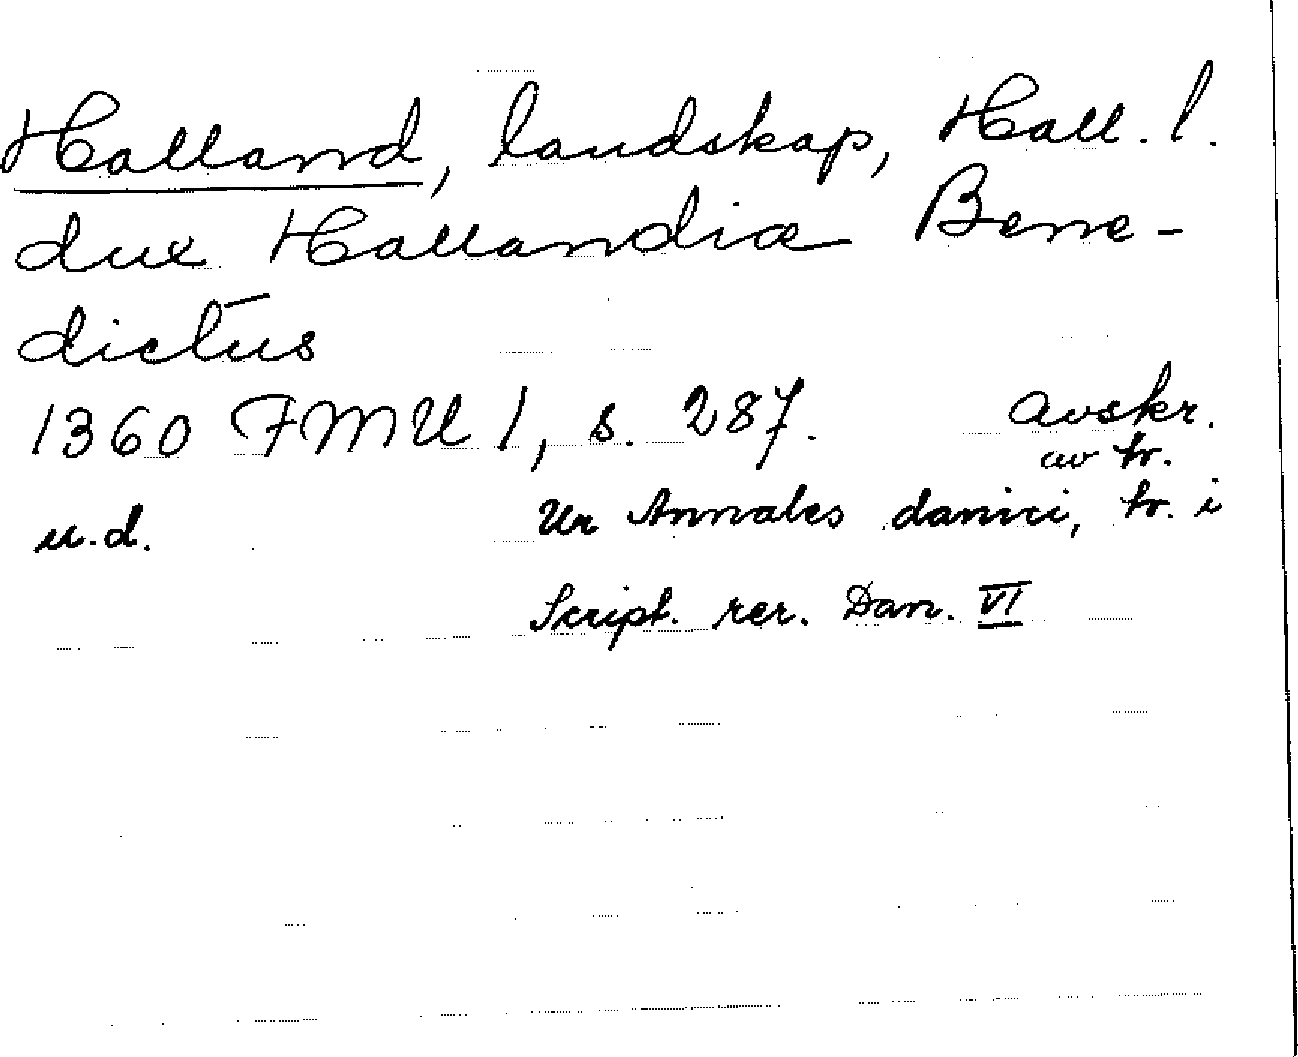 Halland, landskap, Hall. l.
dux Hallandiæ Bene-
dictus
1360 FMU 1, s. 287. Avskr.
av tr.
u.d. Ur Annales danici, tr. i
Script. rer. Dan. VI